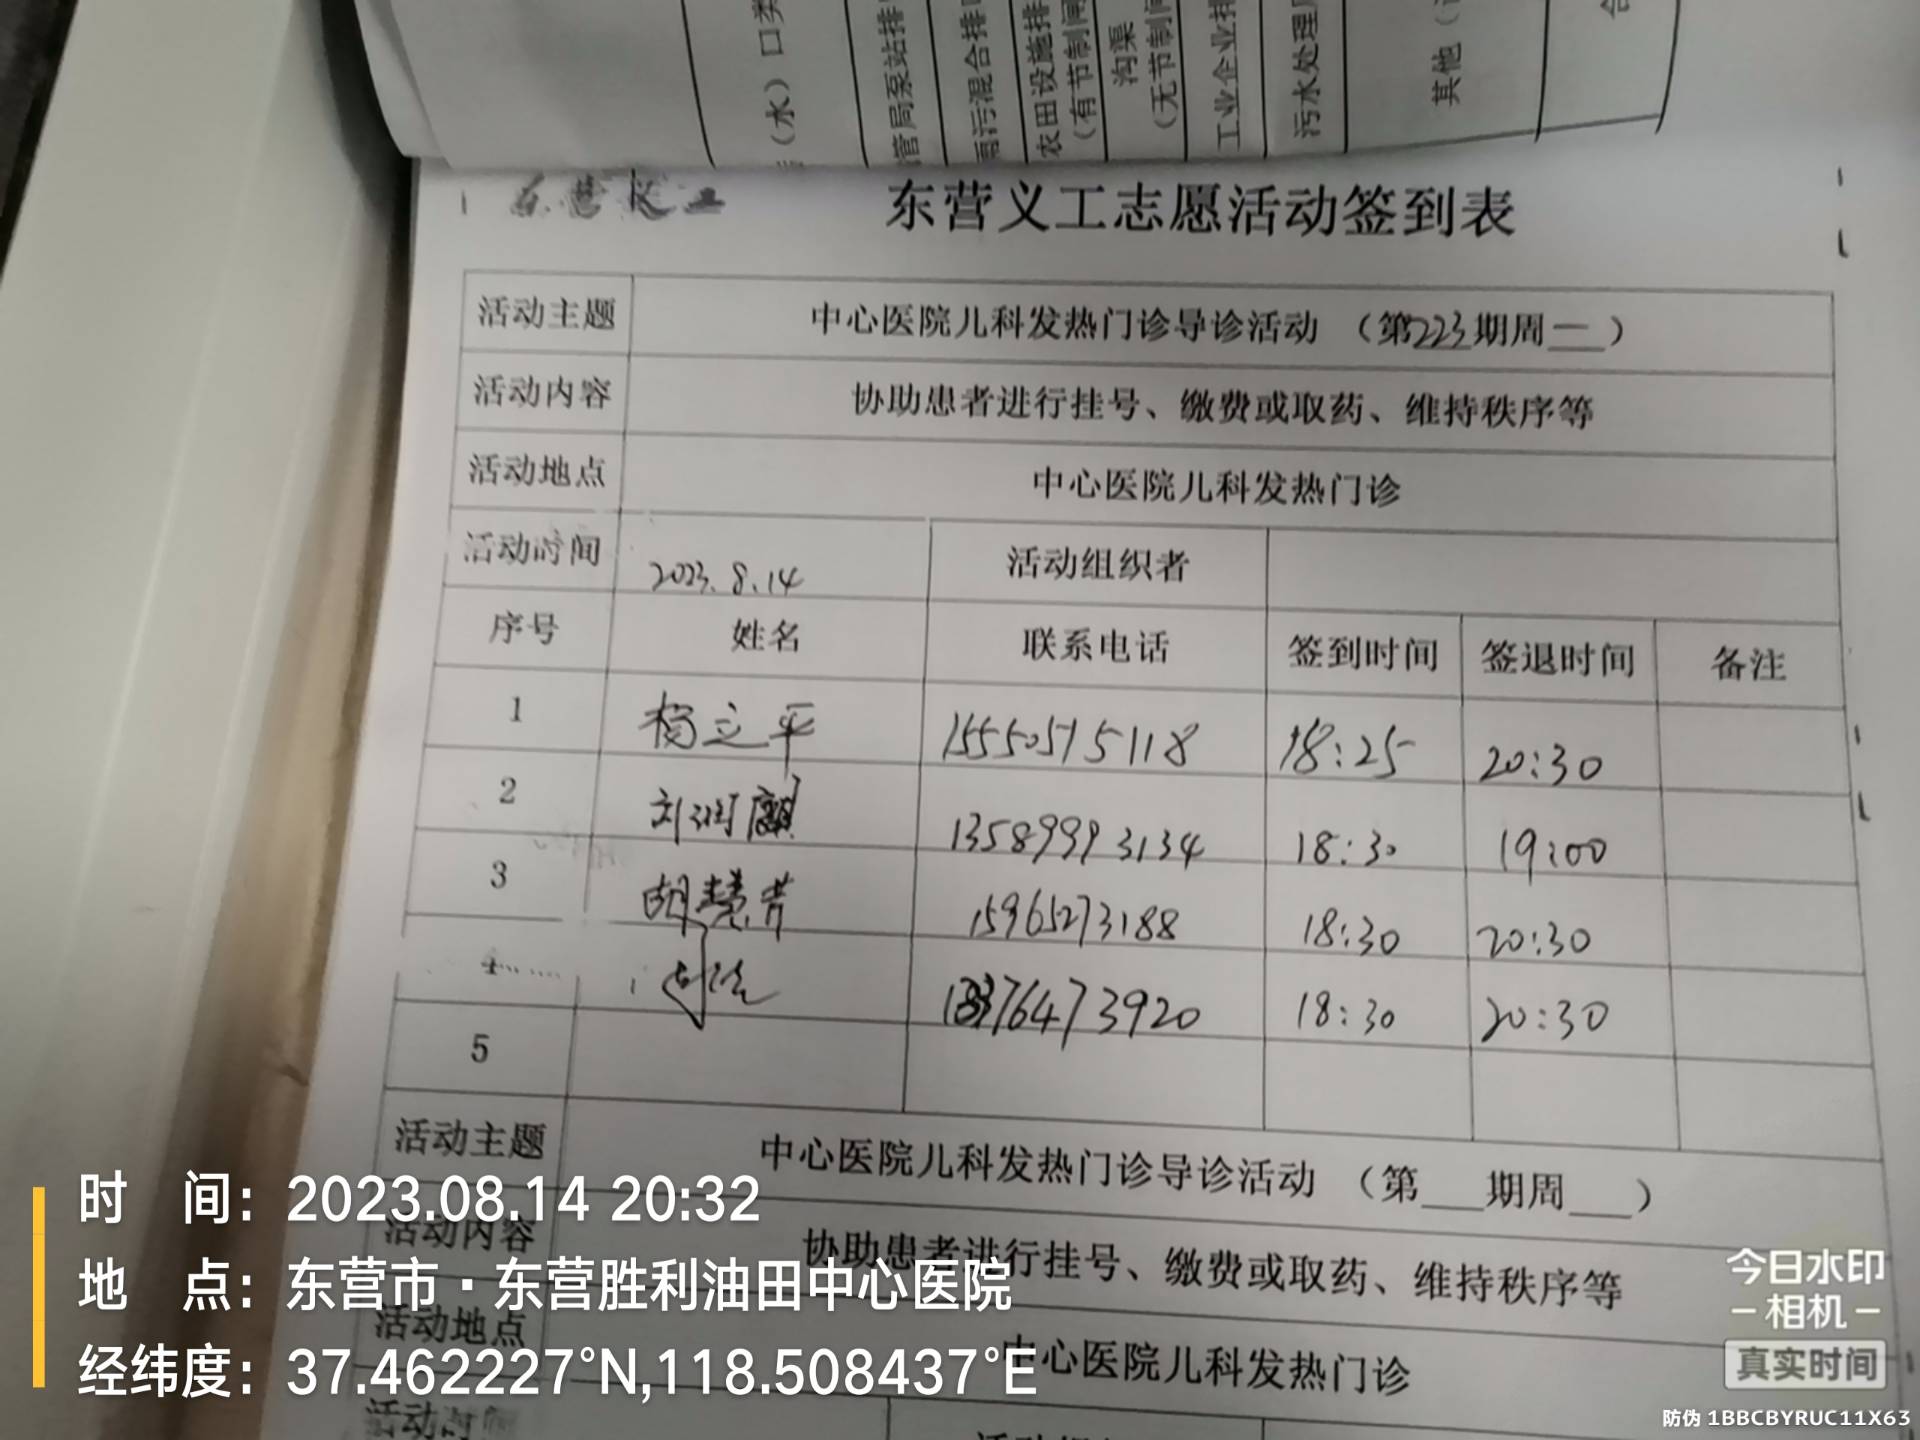 （水）口类
管局泵站排
雨污混合排
农田设施排
（有节制闸
沟渠
（无节制闸
工业企业排
污水处理厂
其他（
合
东营义工
东营义工志愿活动签到表
活动主题 中心医院儿科发热门诊导诊活动 （第223期周一）
活动内容 协助患者进行挂号、缴费或取药、维持秩序等
活动地点 中心医院儿科发热门诊
活动时间 2023.8.14 活动组织者
序号 姓名 联系电话 签到时间 签退时间 备注
1 杨立平 15550515118 18:25 20:30
2 刘润麒 13589993134 18:30 19:00
3 胡慧芳 15965273188 18:30 20:30
4 76473920 18:30 20:30
5
活动主题 中心医院儿科发热门诊导诊活动 （第___期周___）
活动内容 协助患者进行挂号、缴费或取药、维持秩序等
活动地点 中心医院儿科发热门诊
活动时间 活动组
时 间：2023.08.14 20:32
地 点：东营市·东营胜利油田中心医院
经纬度：37.462227°N,118.508437°E
今日水印
-相机-
真实时间
防伪 1BBCBYRUC11X63